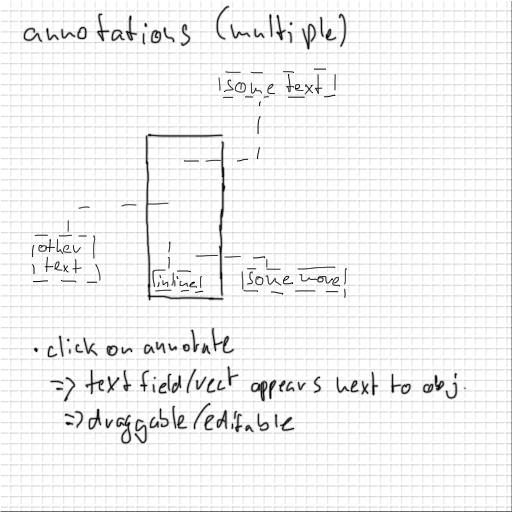 annotations (multiple)
some text
other
text
inline
some more
• click on annotate
=> text field/rect appears next to obj.
=> draggable/editable